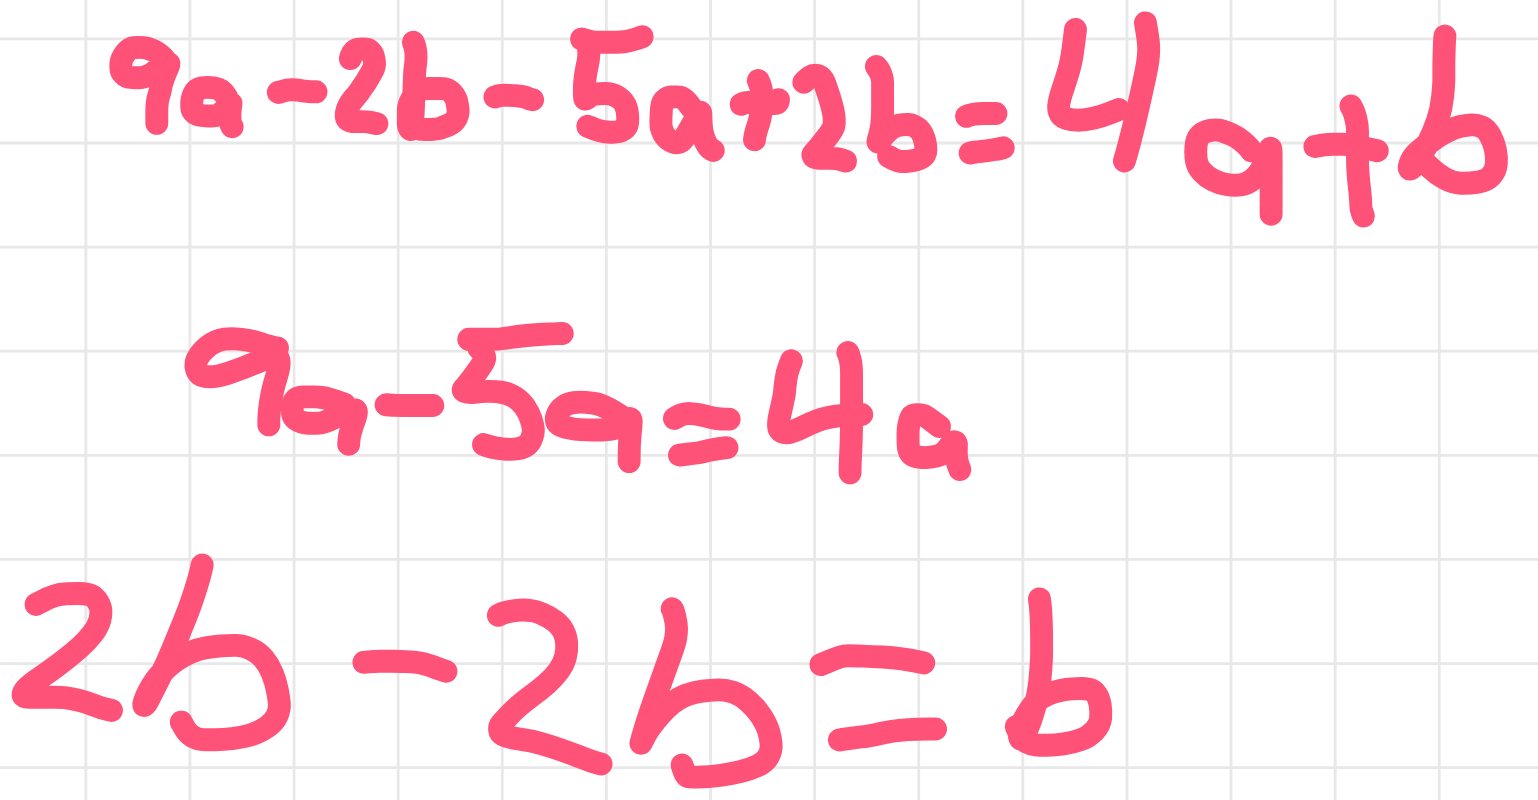 9a-2b-5a+2b=4a+b
9a-5a=4a
2b-2b=b